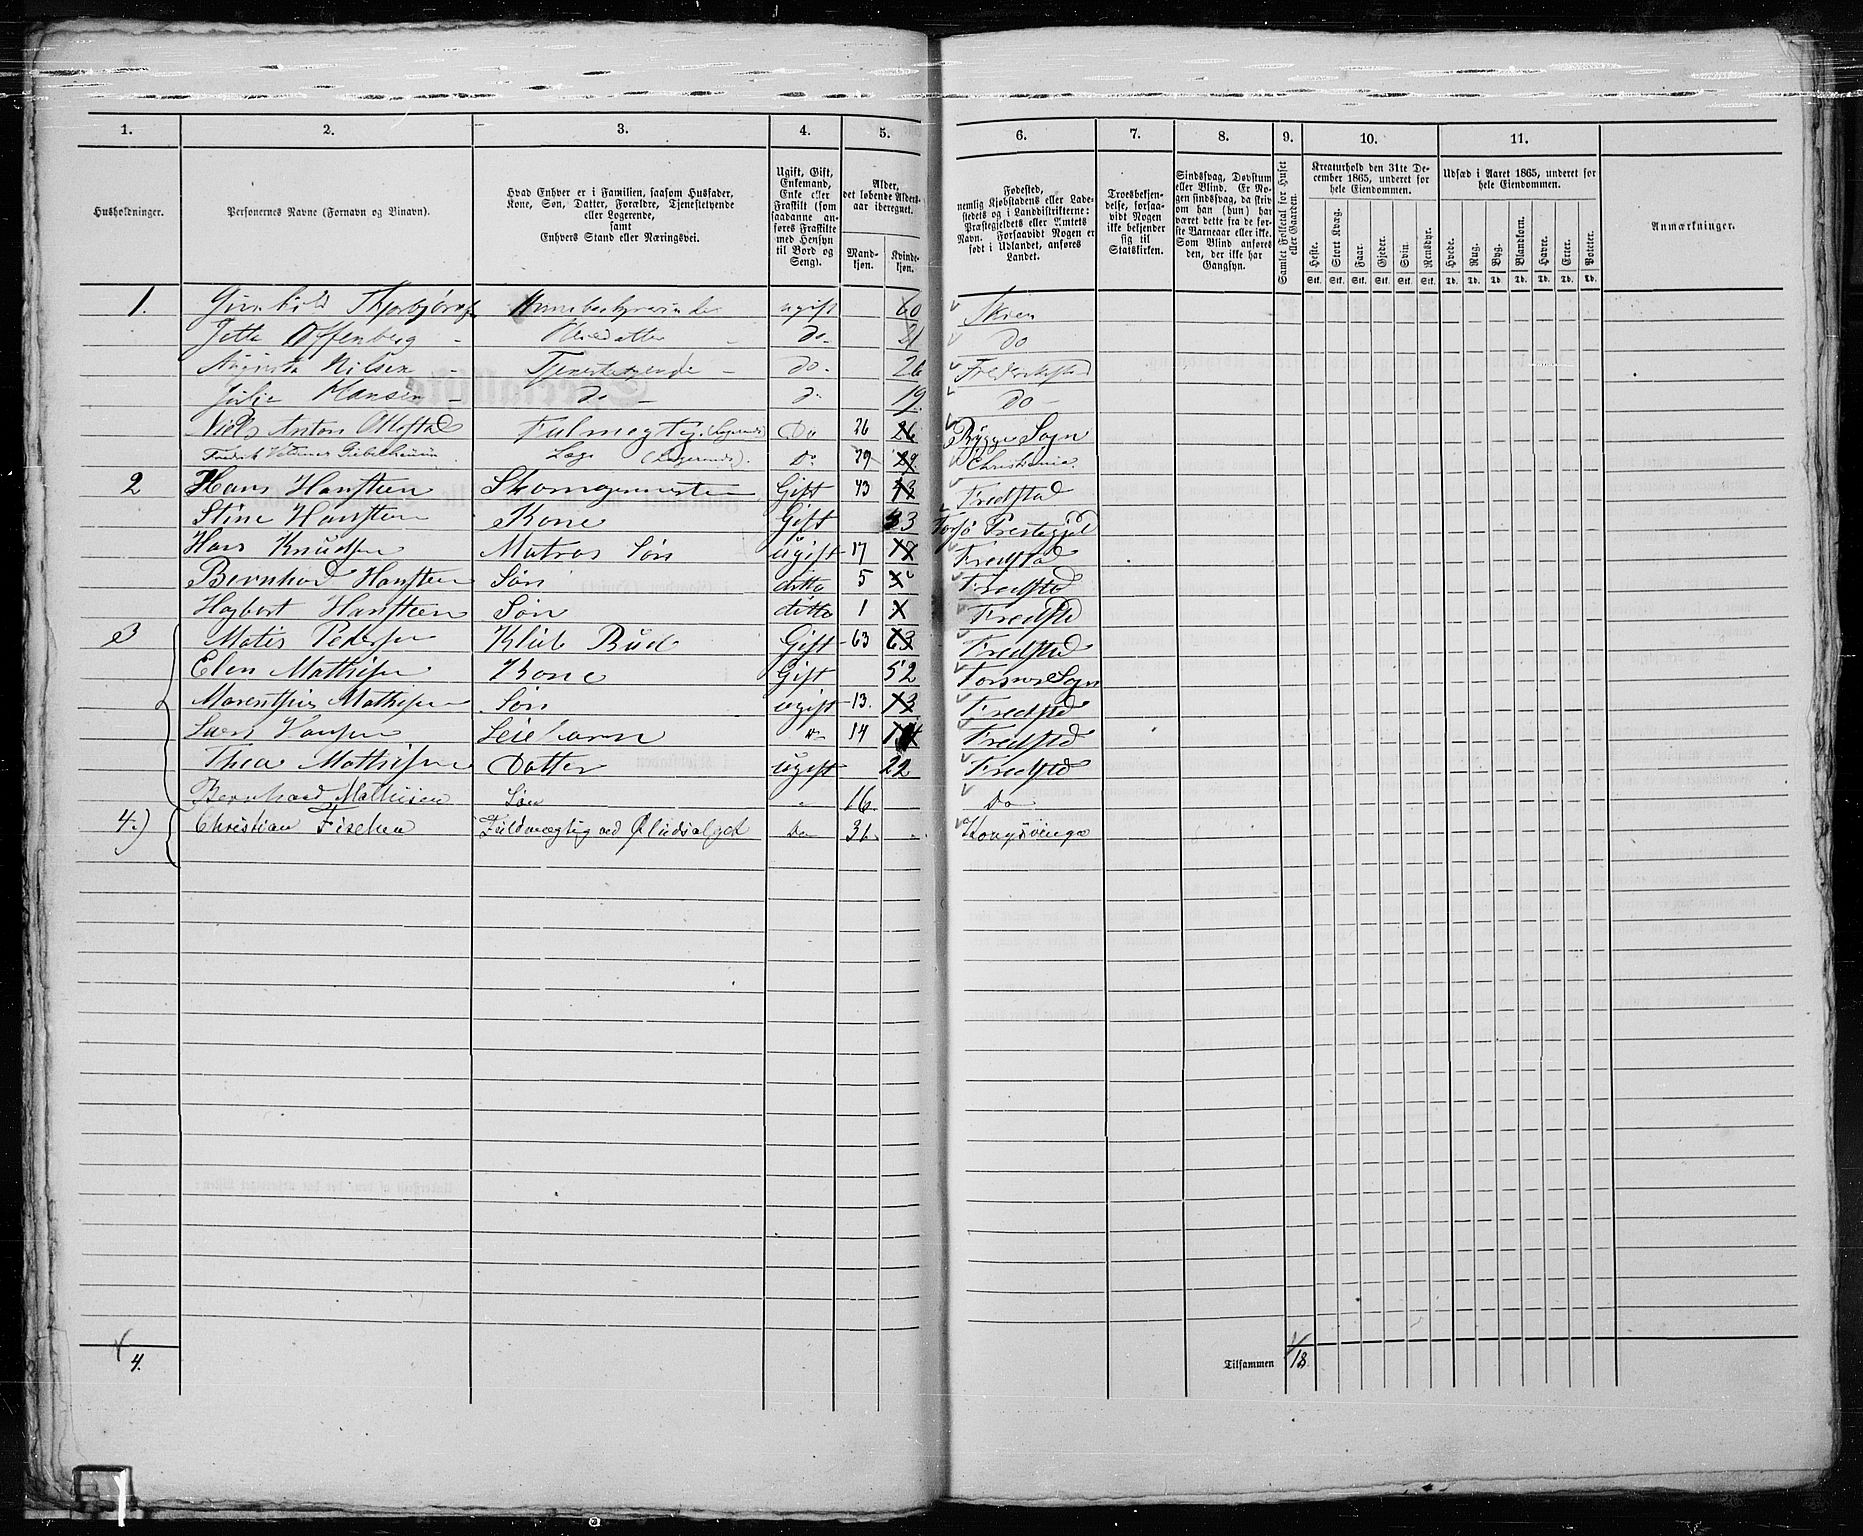 1. 2. 3. 4. 5. 6. 7. 8. 9. 10. 11.
Husholdninger.
Personernes Navne (Fornavn og Binavn).
Hvad Enhver er i Familien, saasom Husfader, Kone, Søn, Datter, Forældre, Tjenestetyende eller Logerende, samt Enhvers Stand eller Næringsvei.
Ugift, Gift, Enkemand, Enke eller Fraskilt (som saadanne anføres Fraskilte med Hensyn til Bord og Seng).
Alder, det løbende Aldersaar iberegnet.
Mandkjøn. Kvindekjøn.
Fødested, nemlig Kjøbstadens eller Ladestedets og i Landdistrikterne: Præstegjeldets eller Amtets Navn. Forsaavidt Nogen er født i Udlandet, anføres Landet.
Troesbekjendelse, forsaavidt Nogen ikke bekjender sig til Statskirken.
Sindssvag, Døvstum eller Blind. Er Nogen sindssvag, da skriv om han (hun) har været dette fra de første Barneaar eller ikke. Som Blind anføres den, der ikke har Gangsyn.
Samlet Folketal for Huset eller Gaarden.
Kreaturhold den 31te December 1865, underet for hele Eiendommen.
Heste. Stort Kvæg. Faar. Gjeder. Svin. Rensdyr.
Stk. Stk. Stk. Stk. Stk. Stk.
Udsæd i Aaret 1865, underet for hele Eiendommen.
Hvede. Rug. Byg. Blandkorn. Havre. Erter. Poteter.
Td. Td. Td. Td. Td. Td. Td.
Anmærkninger.
1. Gunhild ugift 60 Skien
Jette Offenberg - Huusdatter - do- 21 do
Augusta Nilsen - Tjenestetyende - do- 26 Frederikstad
Julie Hansen - do - do 19. do -
Niels Anton Fulmægtig (Logerende) Do 26 26 Rygge Sogn
Fredrik Læge (Logerende). Do 29 29 Christiania.
2 Hans Hansteen Skomagermester Gift 43 43 Fredstad
Stine Hansteen Kone Gift 33 Torsø Prestegjel
Hans Knudsen Matros Søn ugift 17 17 Fredstad
Bernhard Hansteen Søn ditto 5 5 Fredstad
Hansteen Søn ditto 1 Fredstd
3 Matis Pedersen Klub Bud Gift 63 63 Fredstad
Elen Mathisen Kone Gift 52 Sogn
Mathisen Søn ugift 13. 13 Fredstd
Hansen Leiebarn " 14 14 Fredstd
Thea Mathisen Datter ugift 22 Fredstd
Bernhard Mathisen Søn " 16 Do
4.) Christian Fischer Fuldmægtig ved Do 31. Kongsvinger
4. Tilsammen 18